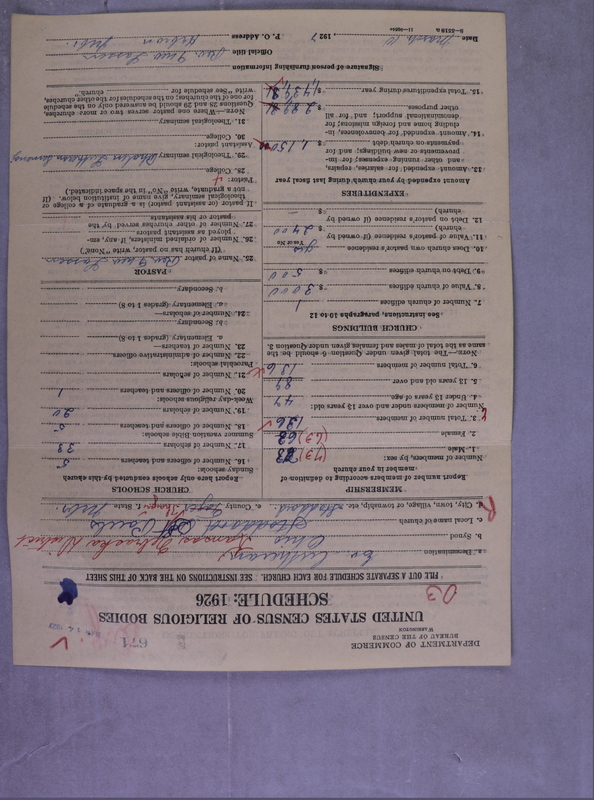 DEPARTMENT OF COMMERCE
BUREAU OF THE CENSUS
WASHINGTON
671
UNITED STATES CENSUS OF RELIGIOUS BODIES
SCHEDULE: 1926
03
FILL OUT A SEPARATE SCHEDULE FOR EACH CHURCH. SEE INSTRUCTIONS ON THE BACK OF THIS SHEET
a. Denomination Ev. Lutheran
b. Synod Ohio Kansas Nebraska District
c. Local name of church Stoddard St Pauls
d. City, town, village, or township, etc. Stoddard e. County Thayer f. State Nebr.
MEMBERSHIP
Report number of members according to definition of member in your church
Number of members, by sex:
1. Male (73)
2. Female (63) 68
3. Total number of members 136
Number of members under and over 13 years old:
4. Under 13 years of age 47
5. 13 years old and over 89
6. Total number of members 136
NOTE.—The total given under Question 6 should be the same as the total of males and females given under Question 3.
CHURCH BUILDINGS
See instructions, paragraphs 10 to 12
7. Number of church edifices 1
8. Value of church edifices $ 3000
9. Debt on church edifices $ 500
10. Does church own pastor's residence yes
Yes or No
11. Value of pastor's residence (if owned by church) $ 2400
12. Debt on pastor's residence (if owned by church) $
EXPENDITURES
Amount expended by your church during last fiscal year
13. Amount expended for salaries, repairs, and other running expenses; for improvements or new buildings; and for payments on church debt $ 1,150
14. Amount expended for benevolences, including home and foreign missions; for denominational support; and for all other purposes $ 289.31
15. Total expenditures during year $ 1,439.31
CHURCH SCHOOLS
Report here only schools conducted by this church
Sunday schools:
16. Number of officers and teachers 5
17. Number of scholars 33
Summer vacation Bible schools:
18. Number of officers and teachers
19. Number of scholars 20
Week-day religious schools:
20. Number of officers and teachers 1
21. Number of scholars
Parochial schools:
22. Number of administrative officers
23. Number of teachers—
a. Elementary (grades 1 to 8)
b. Secondary
24. Number of scholars—
a. Elementary (grades 1 to 8)
b. Secondary
PASTOR
25. Name of pastor Rev. Theo Lassen
(If church has no pastor, write "None")
26. Number of ordained ministers, if any, employed as assistant pastor
27. Number of other churches served by the pastor or his assistants
If pastor (or assistant pastor) is a graduate of a college or theological seminary, give name of institution below. (If not a graduate, write "No" in the space indicated.)
Pastor:
28. College
29. Theological seminary
Assistant pastor:
30. College
31. Theological seminary
NOTE.—When one pastor serves two or more churches, Questions 28 and 29 should be answered only on the schedule for one of the churches; on the schedules for the other churches, write "See schedule for church."
Signature of person furnishing information
Official title Rev. Theo Lassen
Date March 10 1927 P. O. Address Hebron Nebr.
8—5519 a